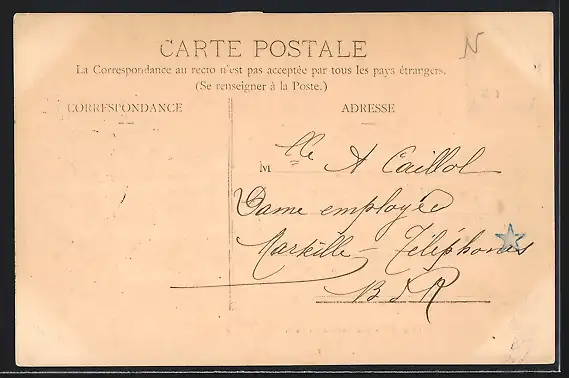 N
CARTE POSTALE
La Correspondance au recto n'est pas acceptée par tous les pays étrangers.
(Se renseigner à la Poste.)
CORRESPONDANCE
ADRESSE
M lle A Caillol
Dame employée
Marseille - Téléphones
B d R